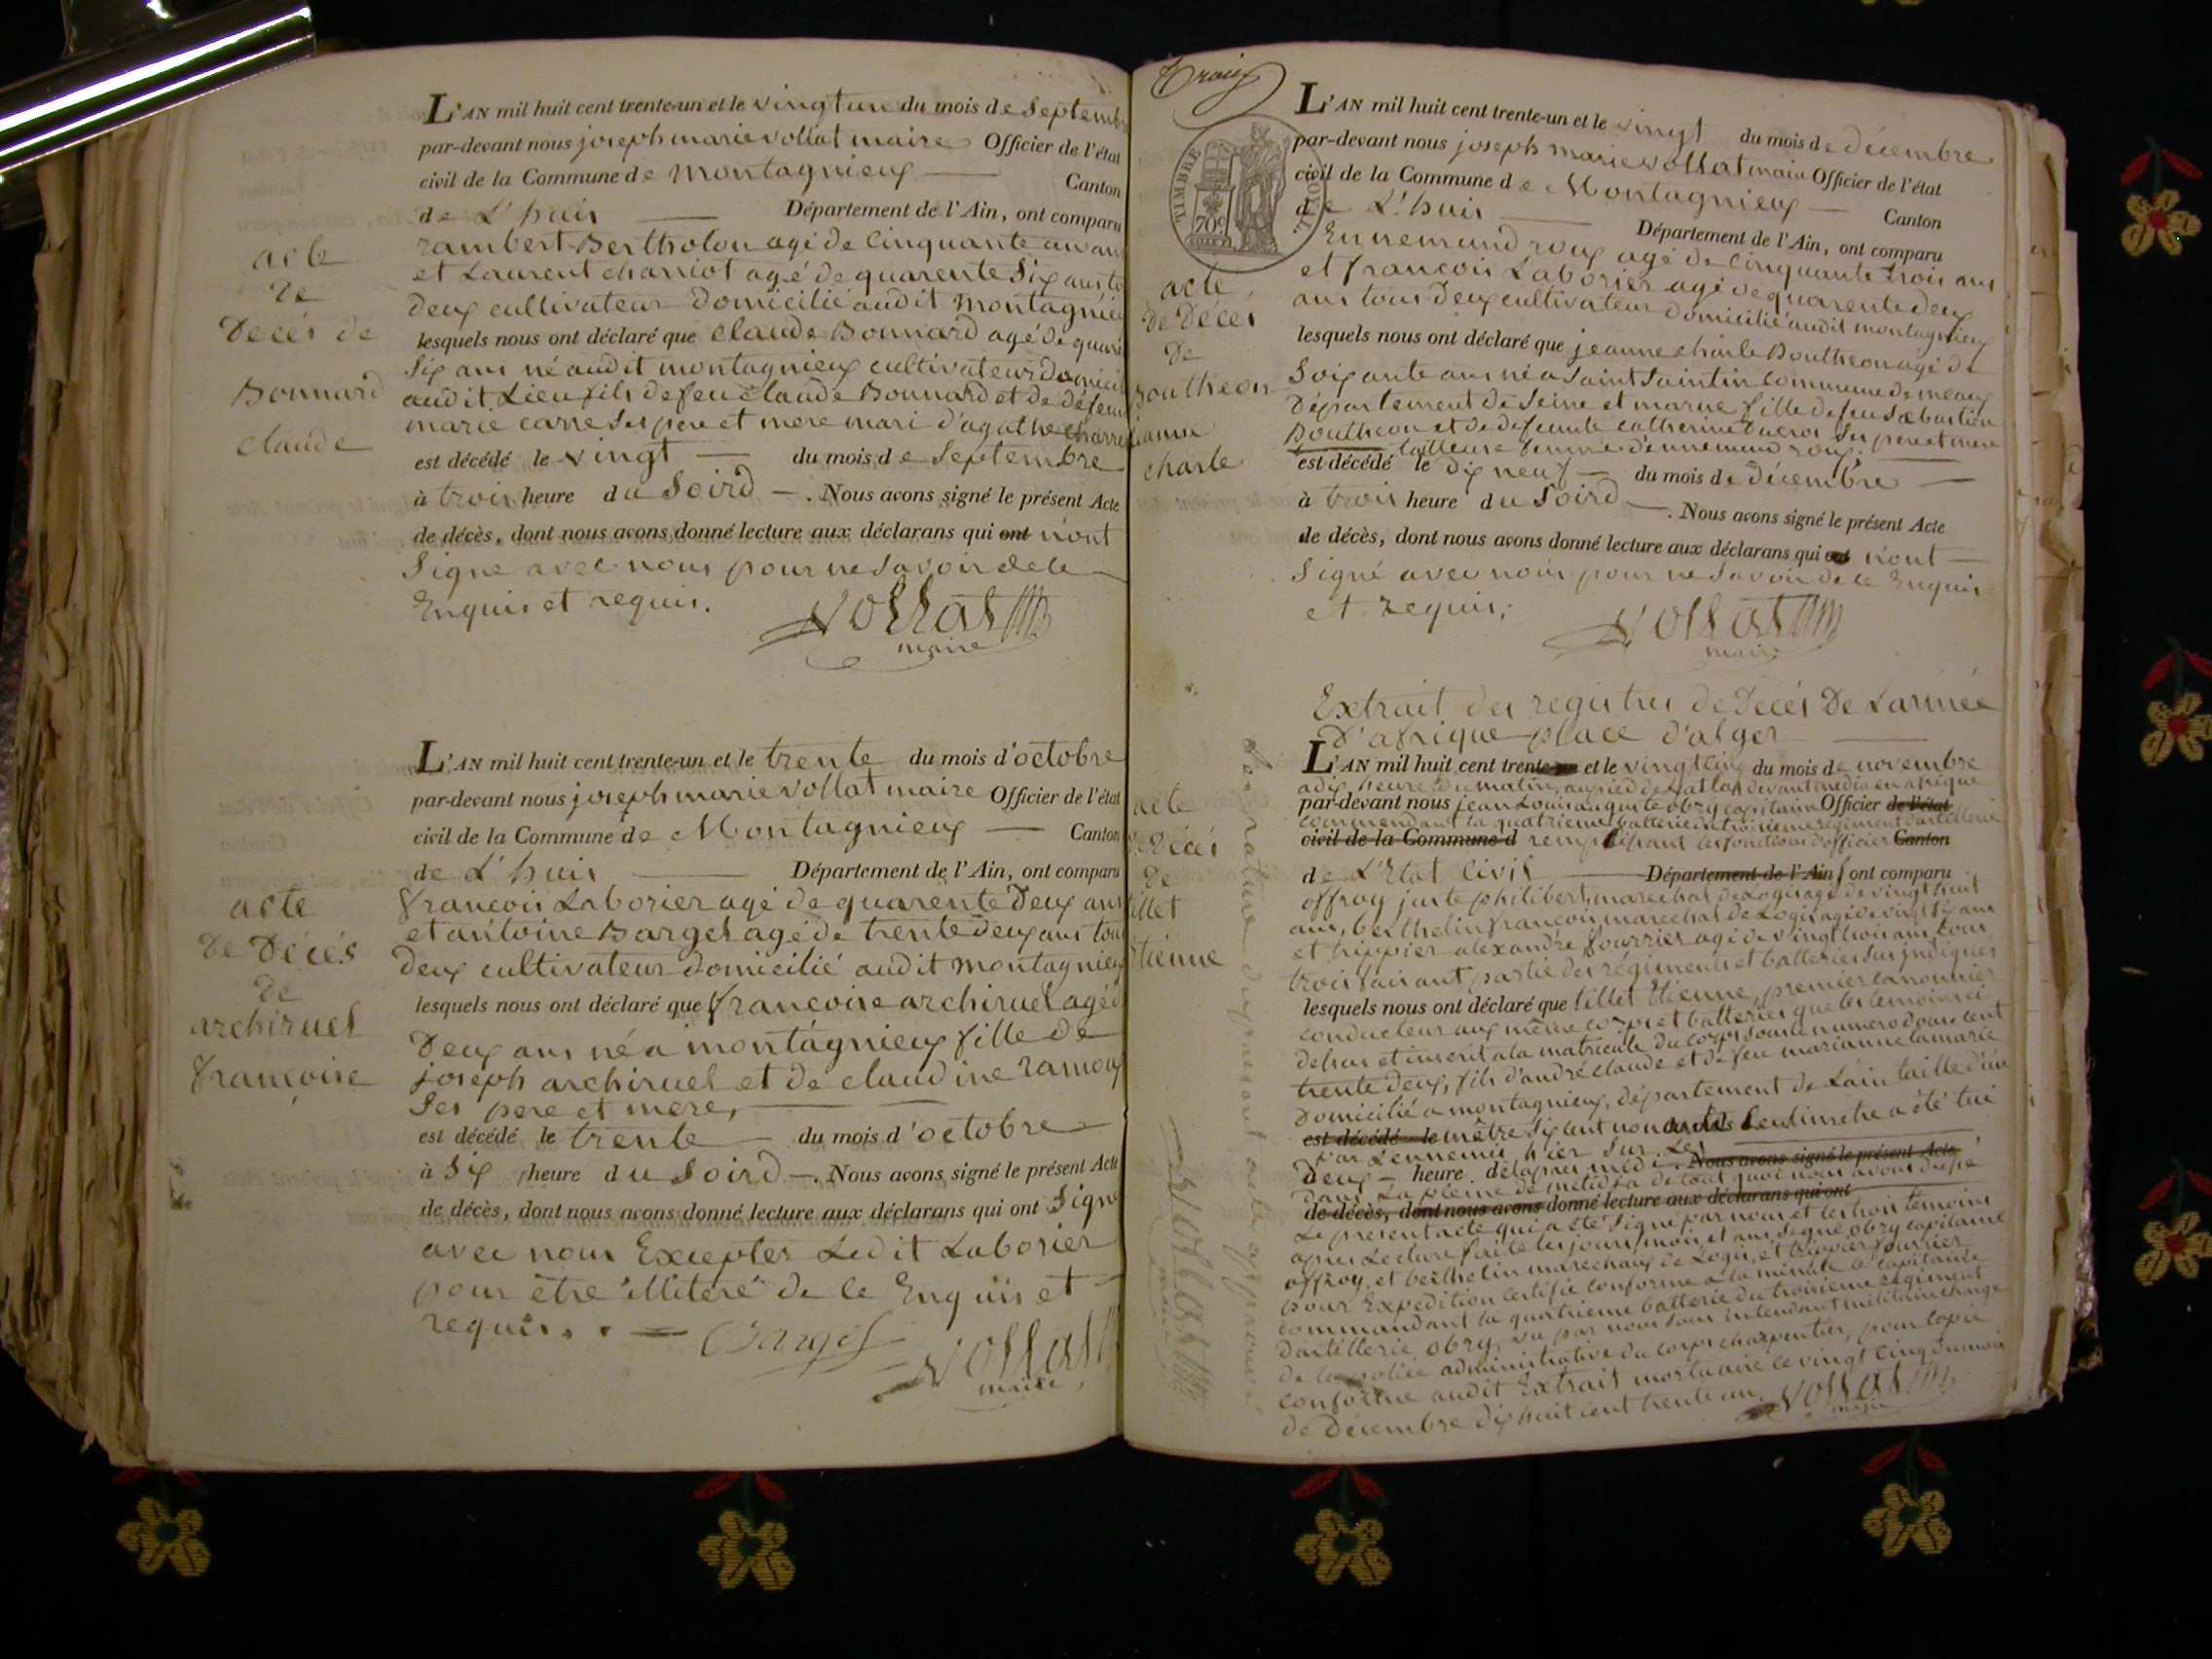 L'AN mil huit cent trente-un et le vingt un du mois de Septemb
par-devant nous joseph marie vollat maire Officier de l'état
civil de la Commune de Montagnieux Canton
de L'huis Département de l'Ain, ont comparu
rambert Bertholon agé de Cinquante un ans
et Laurent charriot agé de quarente Six ans to
Deux cultivateur Domicilié audit Montagnieu
lesquels nous ont déclaré que claude Bonnard agé de quare
Six ans né audit montagnieux cultivateur Domicil
audit Lieu fils de feu claude Bonnard et de défunt
marie carre Ses pere et mere mari d'agathe
est décédé le vingt du mois de Septembre
à trois heure du Soird. Nous avons signé le présent Acte
de décès, dont nous avons donné lecture aux déclarans qui ont n'ont
Signé avec nous pour ne Savoir de ce
Enquis et requis.
Vollat
maire
acte
De
Decés de
Bonnard
claude
L'AN mil huit cent trente-un et le trente du mois d'octobre
par-devant nous joseph marie vollat maire Officier de l'état
civil de la Commune de Montagnieux Canton
de L'huis Département de l'Ain, ont comparu
françois Laborier agé de quarente Deux ans
et antoine Bargel agé de trente Deux ans tou
Deux cultivateur Domicilié audit Montagnieux
lesquels nous ont déclaré que françoise archiruel agé d
Deux ans né a montagnieux fille de
joseph archiruel et de claudine ramoux
Ses pere et mere,
est décédé le trente du mois d'octobre
à Six heure du Soird. Nous avons signé le présent Acte
de décès, dont nous avons donné lecture aux déclarans qui ont Signé
avec nous Excepter Ledit Laborier
pour être illiteré de ce Enquis et
requis. Bargel
Vollat
maire
acte
De Décés
De
archiruel
françoise
L'AN mil huit cent trente-un et le vingt du mois de décembre
par-devant nous joseph marie vollat maire Officier de l'état
civil de la Commune de Montagnieux Canton
de L'huis Département de l'Ain, ont comparu
Ennemund roux agé de Cinquante trois ans
et françois Laborier agé de quarente deux
ans tous Deux cultivateur Domicilié audit montagnieux
lesquels nous ont déclaré que jeanne charle Boutheon agé de
Soixante ans né a Saint Saintin commune de meaux
Département de Seine et marne fille de feu Sebastien
Boutheon et de defunte catherine Ses pere et mere
tailleuse femme d'ennemund roux.
est décédé le dix neuf du mois de décembre
à trois heure du Soird. Nous avons signé le présent Acte
de décès, dont nous avons donné lecture aux déclarans qui ont n'ont
Signé avec nous pour ne Savoir de ce Enquis
et requis;
Vollat
maire
TIMBRE
70c
acte
De Décés
De
Boutheon
jeanne
charle
Extrait des registres de Décés De L'armée
D'afrique place d'alger
L'AN mil huit cent trente-un et le vingt cinq du mois de novembre
a dix heure du matin, au pied de L'atlas devant media en afrique
par-devant nous jean Louis auguste obry capitaine Officier de l'état
commendant la quatrieme batterie du troisieme regiment d'artillerie
civil de la Commune d remplissant les fonctions d'officier Canton
de L'Etat Civil Département de l'Ain, ont comparu
offroy juste philibert, marechal de Logis agé de vingt huit
ans, berthelin françois marechal de Logis agé de vingt six ans
et trippier alexandre fourrier agé de vingt trois ans tous
trois faisant partie des régiments et batteries Sus indiques
lesquels nous ont déclaré que tillet Etienne, premier canonnier
conducteur aux même corps et batteries que les temoins ci
dessus et inscrit a la matricule du corps sous le numero douze cent
trente Deux, fils d'andré claude et de feu marianne lamarie
Domicilié a montagnieux, département de L'ain taille d'un
est décédé le mêtre Six cent nonante Centimetre a été tué
par L'ennemis hier Sur Les
Deux heure de l'apres midi. Nous avons signé le présent Acte
dans La pleine de metidja de tout quoi nous avons dressé
de décès, dont nous avons donné lecture aux déclarans qui ont
Le present acte qui a été Signé par nous et les trois temoins
apres Lecture faite les jours, mois et ans, Signé obry capitaine
offroy, et berthelin marechaux de Logis, et trippier fourrier
pour Expedition certifié conforme a la minute le capitaine
commandant la quatrieme batterie du troisieme régiment
d'artillerie obry, vu par nous Sous intendant militaire chargé
de la police administrative du corps charpentier, pour copie
conforme audit Extrait mortuaire le vingt cinq du mois
de Décembre dix huit cent trente un. Vollat
maire
acte
De Décés
De
tillet
Etienne
Vollat
maire